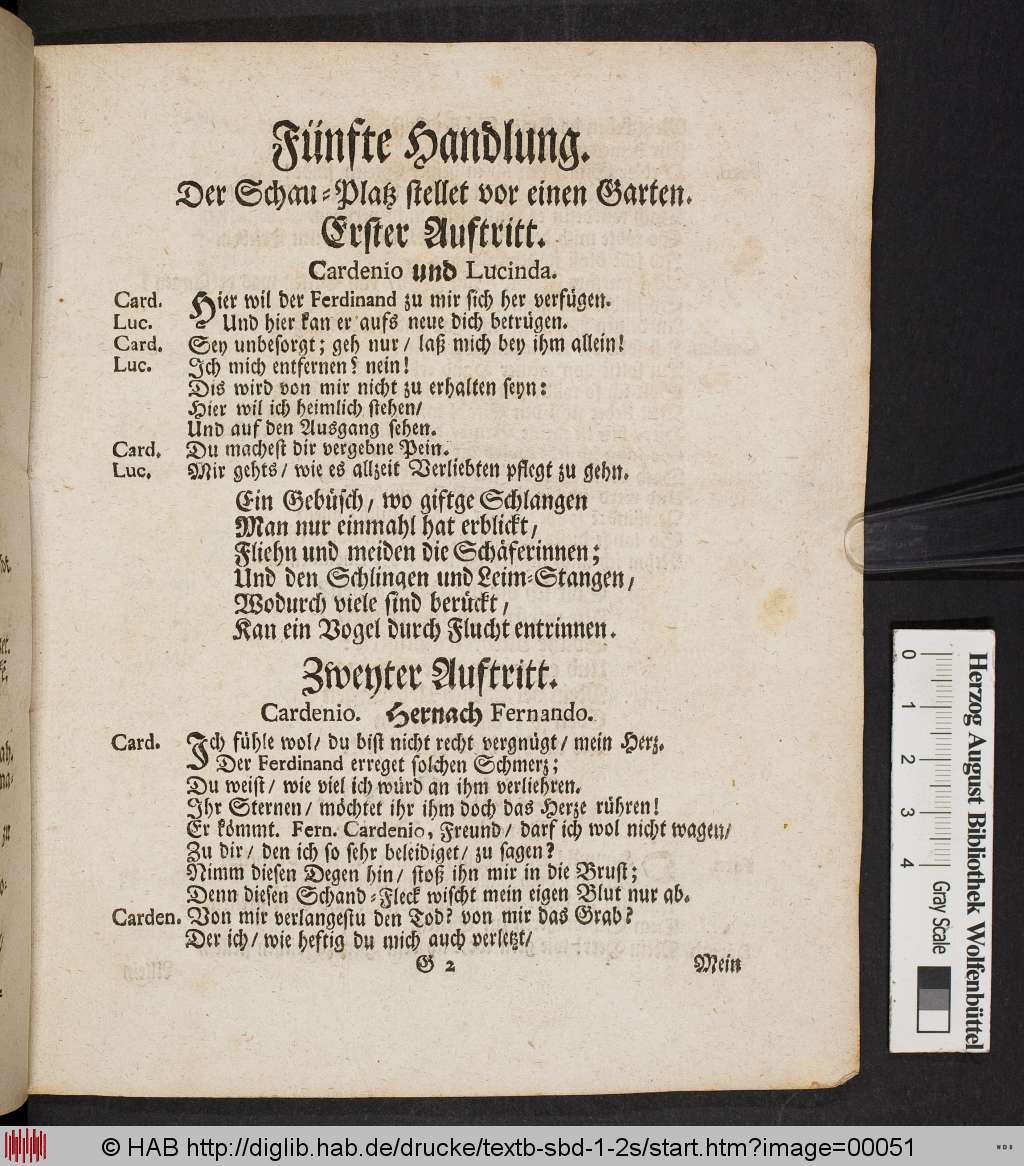 Fünfte Handlung.
Der Schau-Platz stellet vor einen Garten.
Erster Auftritt.
Cardenio und Lucinda.
Card. Hier wil der Ferdinand zu mir sich her verfügen.
Luc. Und hier kan er aufs neue dich betrügen.
Card. Sey unbesorgt; geh nur/ laß mich bey ihm allein!
Luc. Ich mich entfernen? nein!
Dis wird von mir nicht zu erhalten seyn:
Hier wil ich heimlich stehen/
Und auf den Ausgang sehen.
Card. Du machest dir vergebne Pein.
Luc. Mir gehts/ wie es allzeit Verliebten pflegt zu gehn.
Ein Gebüsch/ wo giftge Schlangen
Man nur einmahl hat erblickt/
Fliehn und meiden die Schäferinnen;
Und den Schlingen und Leim-Stangen/
Wodurch viele sind berückt/
Kan ein Vogel durch Flucht entrinnen.
Zweyter Auftritt.
Cardenio. Hernach Fernando.
Card. Ich fühle wol/ du bist nicht recht vergnügt/ mein Herz.
Der Ferdinand erreget solchen Schmerz;
Du weist/ wie viel ich würd an ihm verliehren.
Ihr Sternen/ möchtet ihr ihm doch das Herze rühren!
Er kömmt. Fern. Cardenio, Freund/ darf ich wol nicht wagen/
Zu dir/ den ich so sehr beleidiget/ zu sagen?
Nimm diesen Degen hin/ stoß ihn mir in die Brust;
Denn diesen Schand-Fleck wischt mein eigen Blut nur ab.
Carden. Von mir verlangestu den Tod? von mir das Grab?
Der ich/ wie heftig du mich auch verletzt/
G 2 Mein
0 1 2 3 4
Herzog August Bibliothek Wolfenbüttel
Gray Scale
© HAB http://diglib.hab.de/drucke/textb-sbd-1-2s/start.htm?image=00051